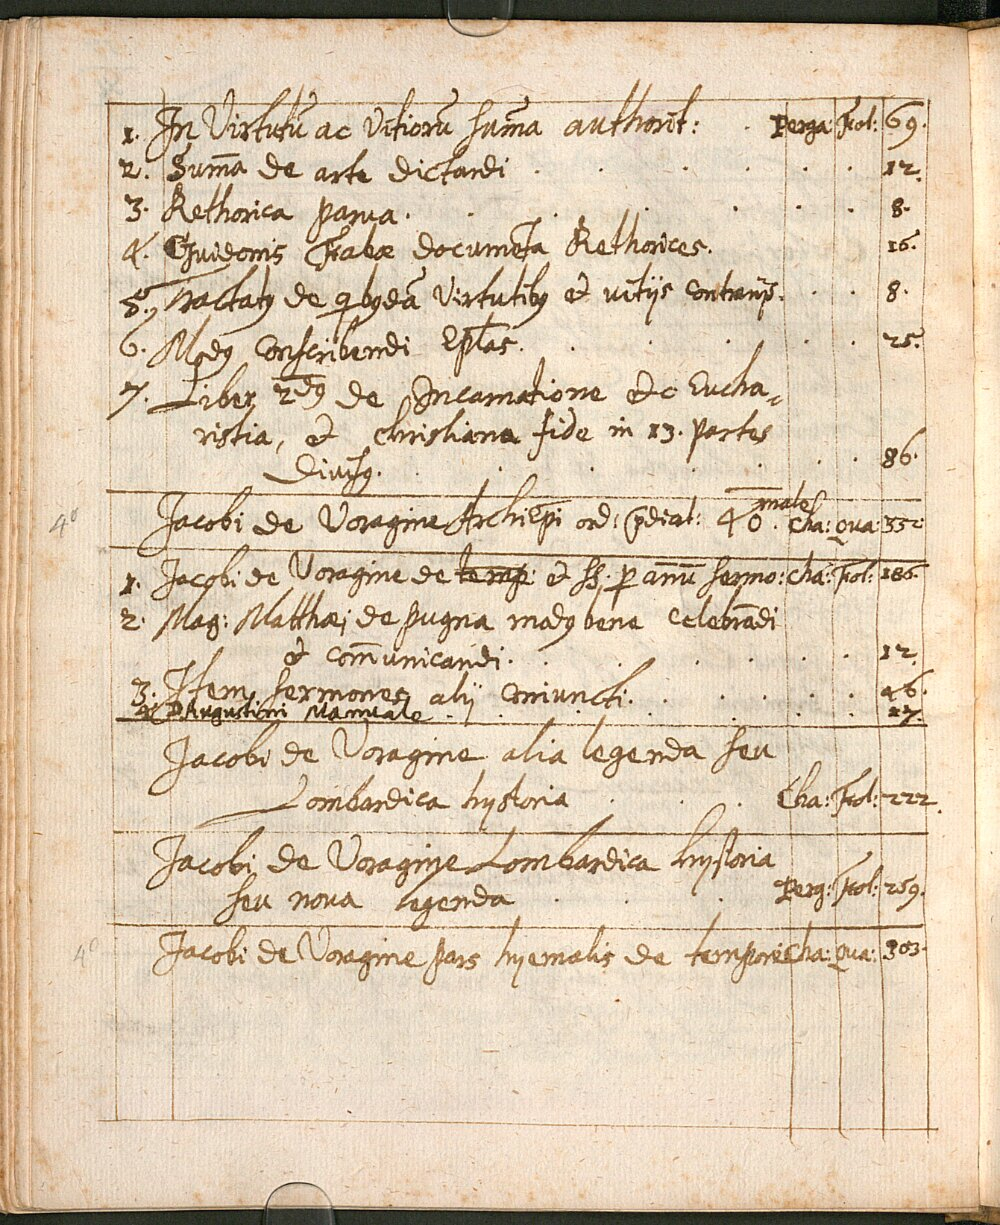 1. In Virtutū ac Vitiorū sum̄a authorit: Perga: Fol: 69.
2. Sum̄a de arte dictandi 12.
3. Rethorica parua. 8.
4. Guidonis Fabæ documēta Rethorices. 16.
5. Tractatꝰ de qbꝰdā Virtutibꝰ et vitijs contrarijs. 8.
6. Modꝰ conscribendi Ep̄las. 25.
7. Liber 2dꝰ de Incarnatione etc Eucha-
ristia, et christiana fide in 13. partes
Diuisꝰ. 86.
4o Jacobi de Voragine Archiep̄i ord: p̄dicat: 40.male Cha: Qua: 332.
1. Jacobi de Voragine de temp: et SS. p̱ annū sermo: Cha: Fol: 186.
2. Mag: Matthæi de pugna modꝰ bene celebrādi
et com̄unicandi. 12.
3. Item sermones alij coniuncti. 46.
4. D Augustini Manuale. 27.
Jacobi de Voragine alia legenda seu
Lombardica hystoria Cha: Fol: 222.
Jacobi de Voragine Lombardica hystoria
seu noua legenda Perg: Fol: 259.
4o Jacobi de Voragine pars hyemalis de tempore Cha: Qua: 303.